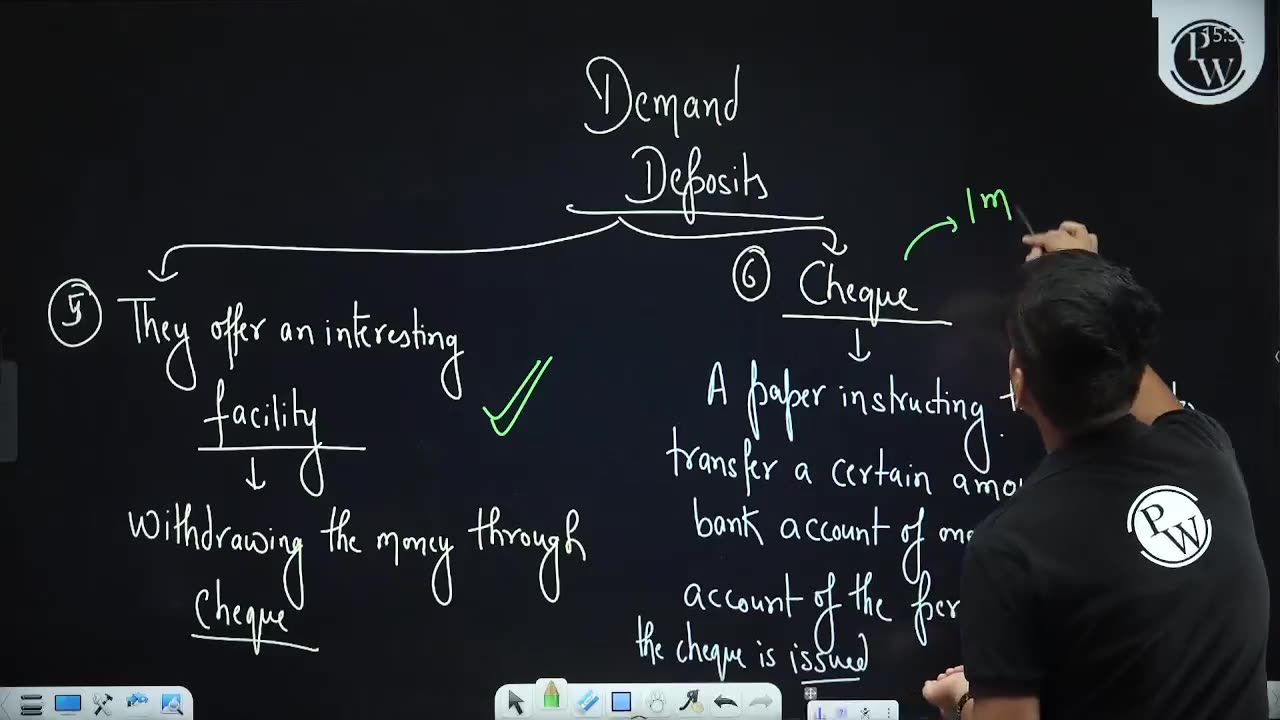 Demand
Deposits
5 They offer an interesting
facility
withdrawing the money through
cheque
6 Cheque
1m
A paper instructing
transfer a certain
bank account of
account of the
the cheque is issued
PW
PW